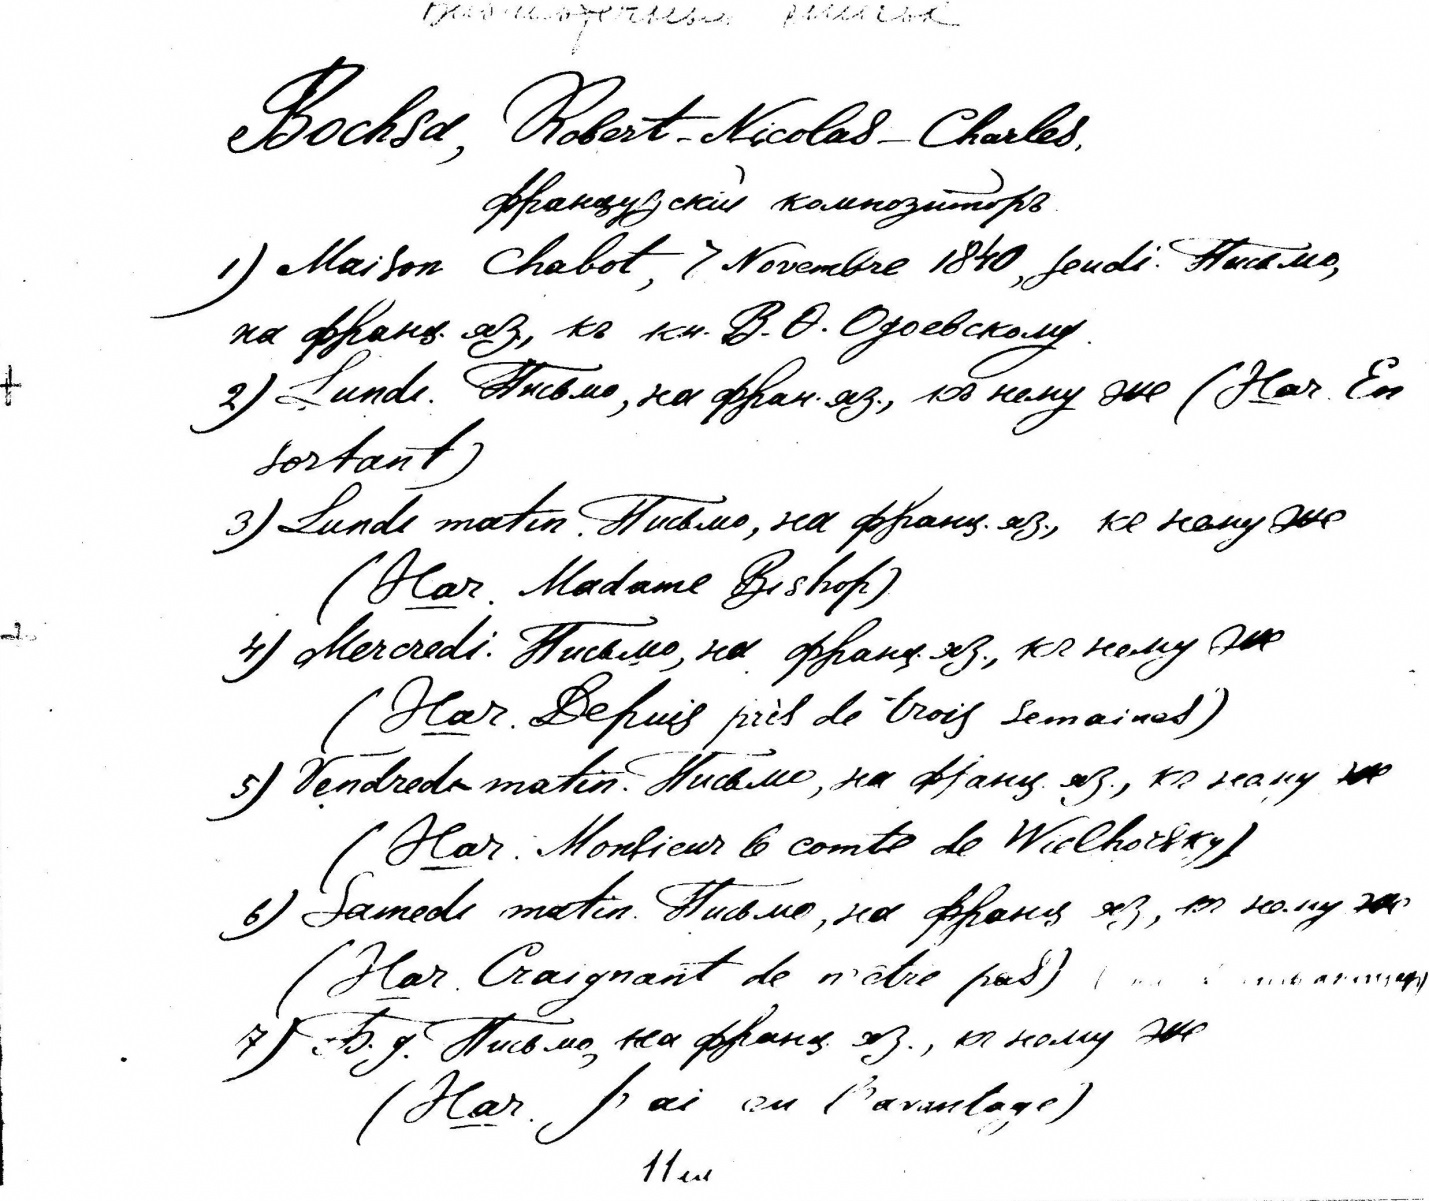 Bochsa, Robert-Nicolas-Charles.
французскій композиторъ
1) Maison Chabot, 7 Novembre 1840, jeudi. Письмо,
на франц. яз., къ кн. В. Ѳ. Одоевскому.
2) Lundi. Письмо, на фран. яз., къ нему же (Нач. En
sortant)
3) Lundi matin. Письмо, на франц. яз., къ нему же
(Нач. Madame Bishop)
4) Mercredi. Письмо, на франц. яз., къ нему же
(Нач. Depuis près de trois semaines)
5) Vendredi matin. Письмо, на франц. яз., къ нему же
(Нач. Monsieur le comte de Wielhorsky)
6) Samedi matin. Письмо, на франц яз, къ нему же
(Нач. Craignant de n'être pas)
7) Б. д. Письмо, на франц. яз., къ нему же
(Нач. J'ai eu l'avantage)
11 лл